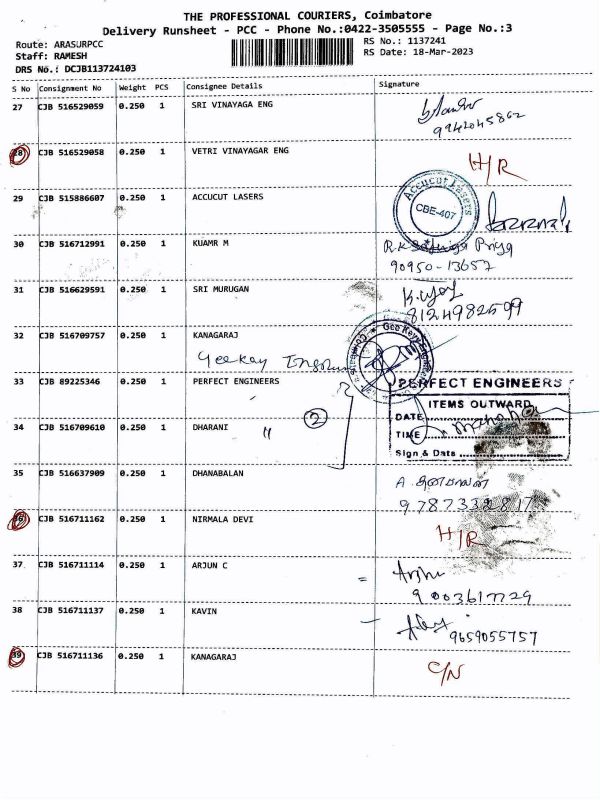 THE PROFESSIONAL COURIERS, Coimbatore
Delivery Runsheet - PCC - Phone No.:0422-3505555 - Page No.:3
Route: ARASURPCC
RS No.: 1137241
Staff: RAMESH
RS Date: 18-Mar-2023
DRS No.: DCJB113724103
S No Consignment No Weight PCS Consignee Details Signature
27 CJB 516529059 0.250 1 SRI VINAYAGA ENG
9942045862
28 CJB 516529058 0.250 1 VETRI VINAYAGAR ENG H/R
29 CJB 515886607 0.250 1 ACCUCUT LASERS
Accucut Lasers
CBE-407
30 CJB 516712991 0.250 1 KUAMR M R.K Priya
90950-13657
31 CJB 516629591 0.250 1 SRI MURUGAN
8124982599
32 CJB 516709757 0.250 1 KANAGARAJ
Geekay
33 CJB 89225346 0.250 1 PERFECT ENGINEERS PERFECT ENGINEERS
ITEMS OUTWARD
DATE
2
34 CJB 516709610 0.250 1 DHARANI "
TIME
Sign & Date
35 CJB 516637909 0.250 1 DHANABALAN
9787332817
36 CJB 516711162 0.250 1 NIRMALA DEVI H/R
37 CJB 516711114 0.250 1 ARJUN C =
9003617729
38 CJB 516711137 0.250 1 KAVIN
9659055757
39 CJB 516711136 0.250 1 KANAGARAJ C/N